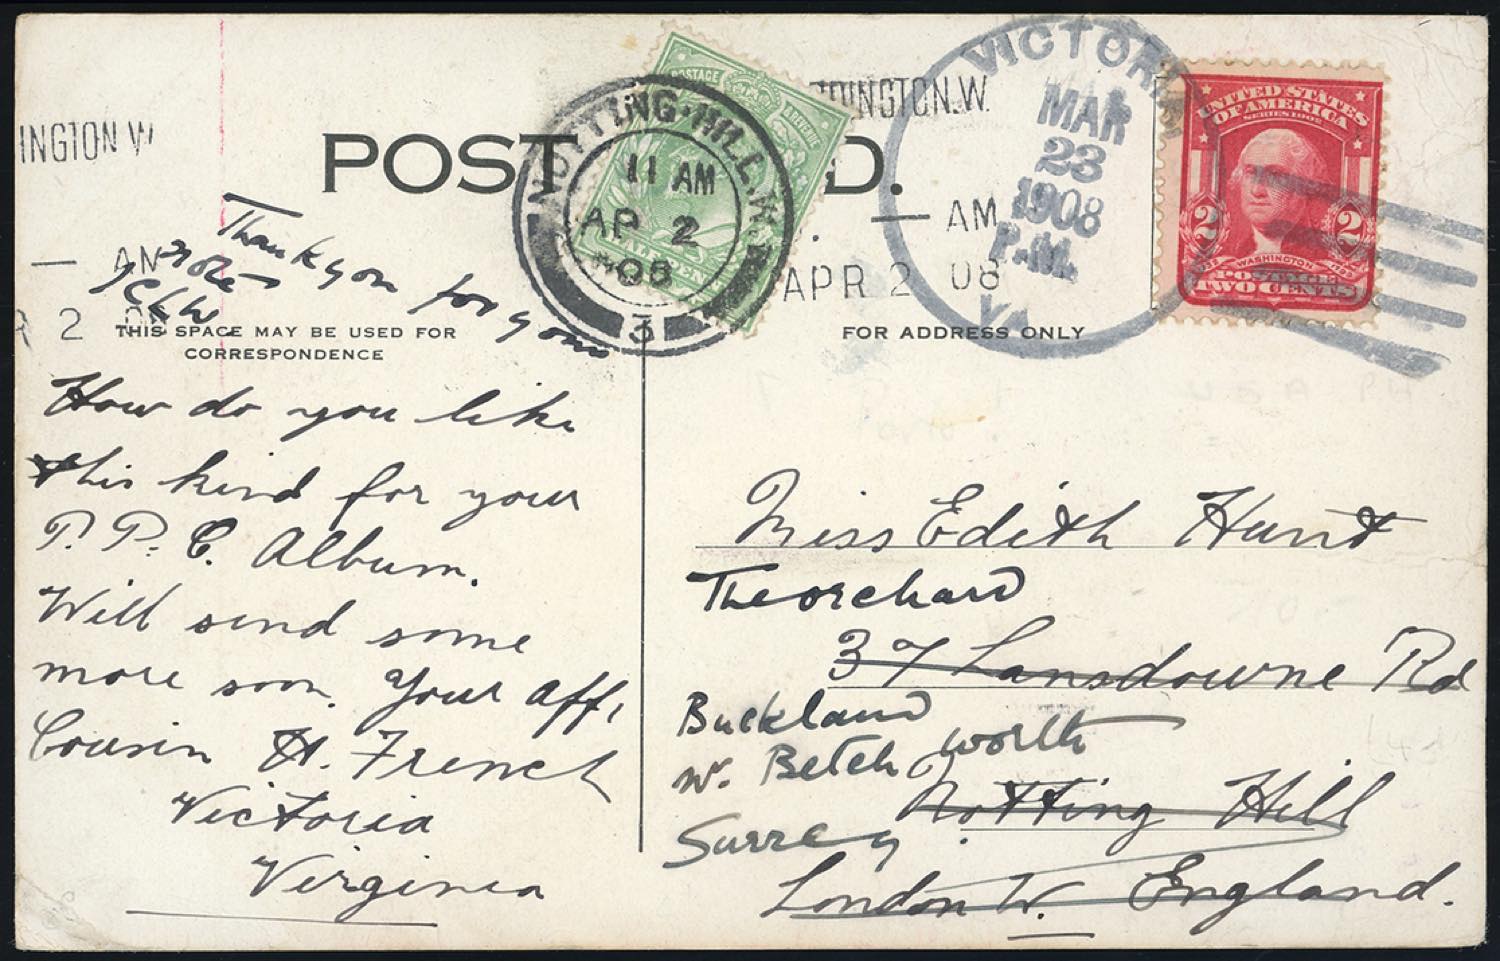 INGTON W
DDINGTON.W.
POST
D.
POSTAGE
& REVENUE
HALFPENNY
NOTTING-HILL.W.
11 AM
AP 2
08
3
AM
APR 2 08
VICTORIA
MAR
23
1908
P.M.
VA.
UNITED STATES
OF AMERICA
SERIES 1902
2
2
WASHINGTON
POSTAGE
TWO CENTS
AM
2 08
Thank you for your
note
THIS SPACE MAY BE USED FOR
CORRESPONDENCE
FOR ADDRESS ONLY
How do you like
this kind for your
P. P. C. Album.
Will send some
more soon. Your aff,
Cousin H. French
Victoria
Virginia
Miss Edith Hunt
The orchard
37 Lansdowne Rd
Buckland
nr. Betchworth
Notting Hill
Surrey
London W. England.